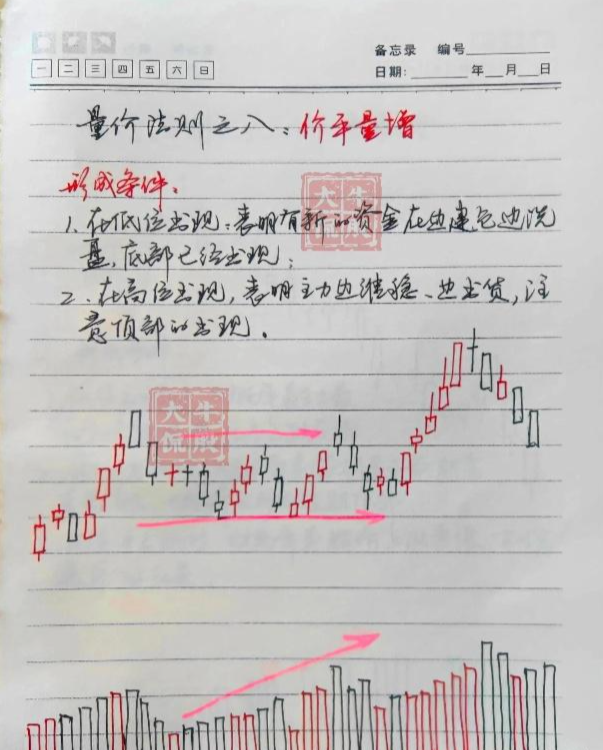 备忘录 编号
一 二 三 四 五 六 日
日期： 年 月 日
量价法则之八：价平量增
形成条件：
1、在低位出现，表明有新的资金在边建仓边洗
盘，底部已经出现；
2、在高位出现，表明主力边维稳、边出货，注
意顶部的出现。
大牛
侃股
大牛
侃股